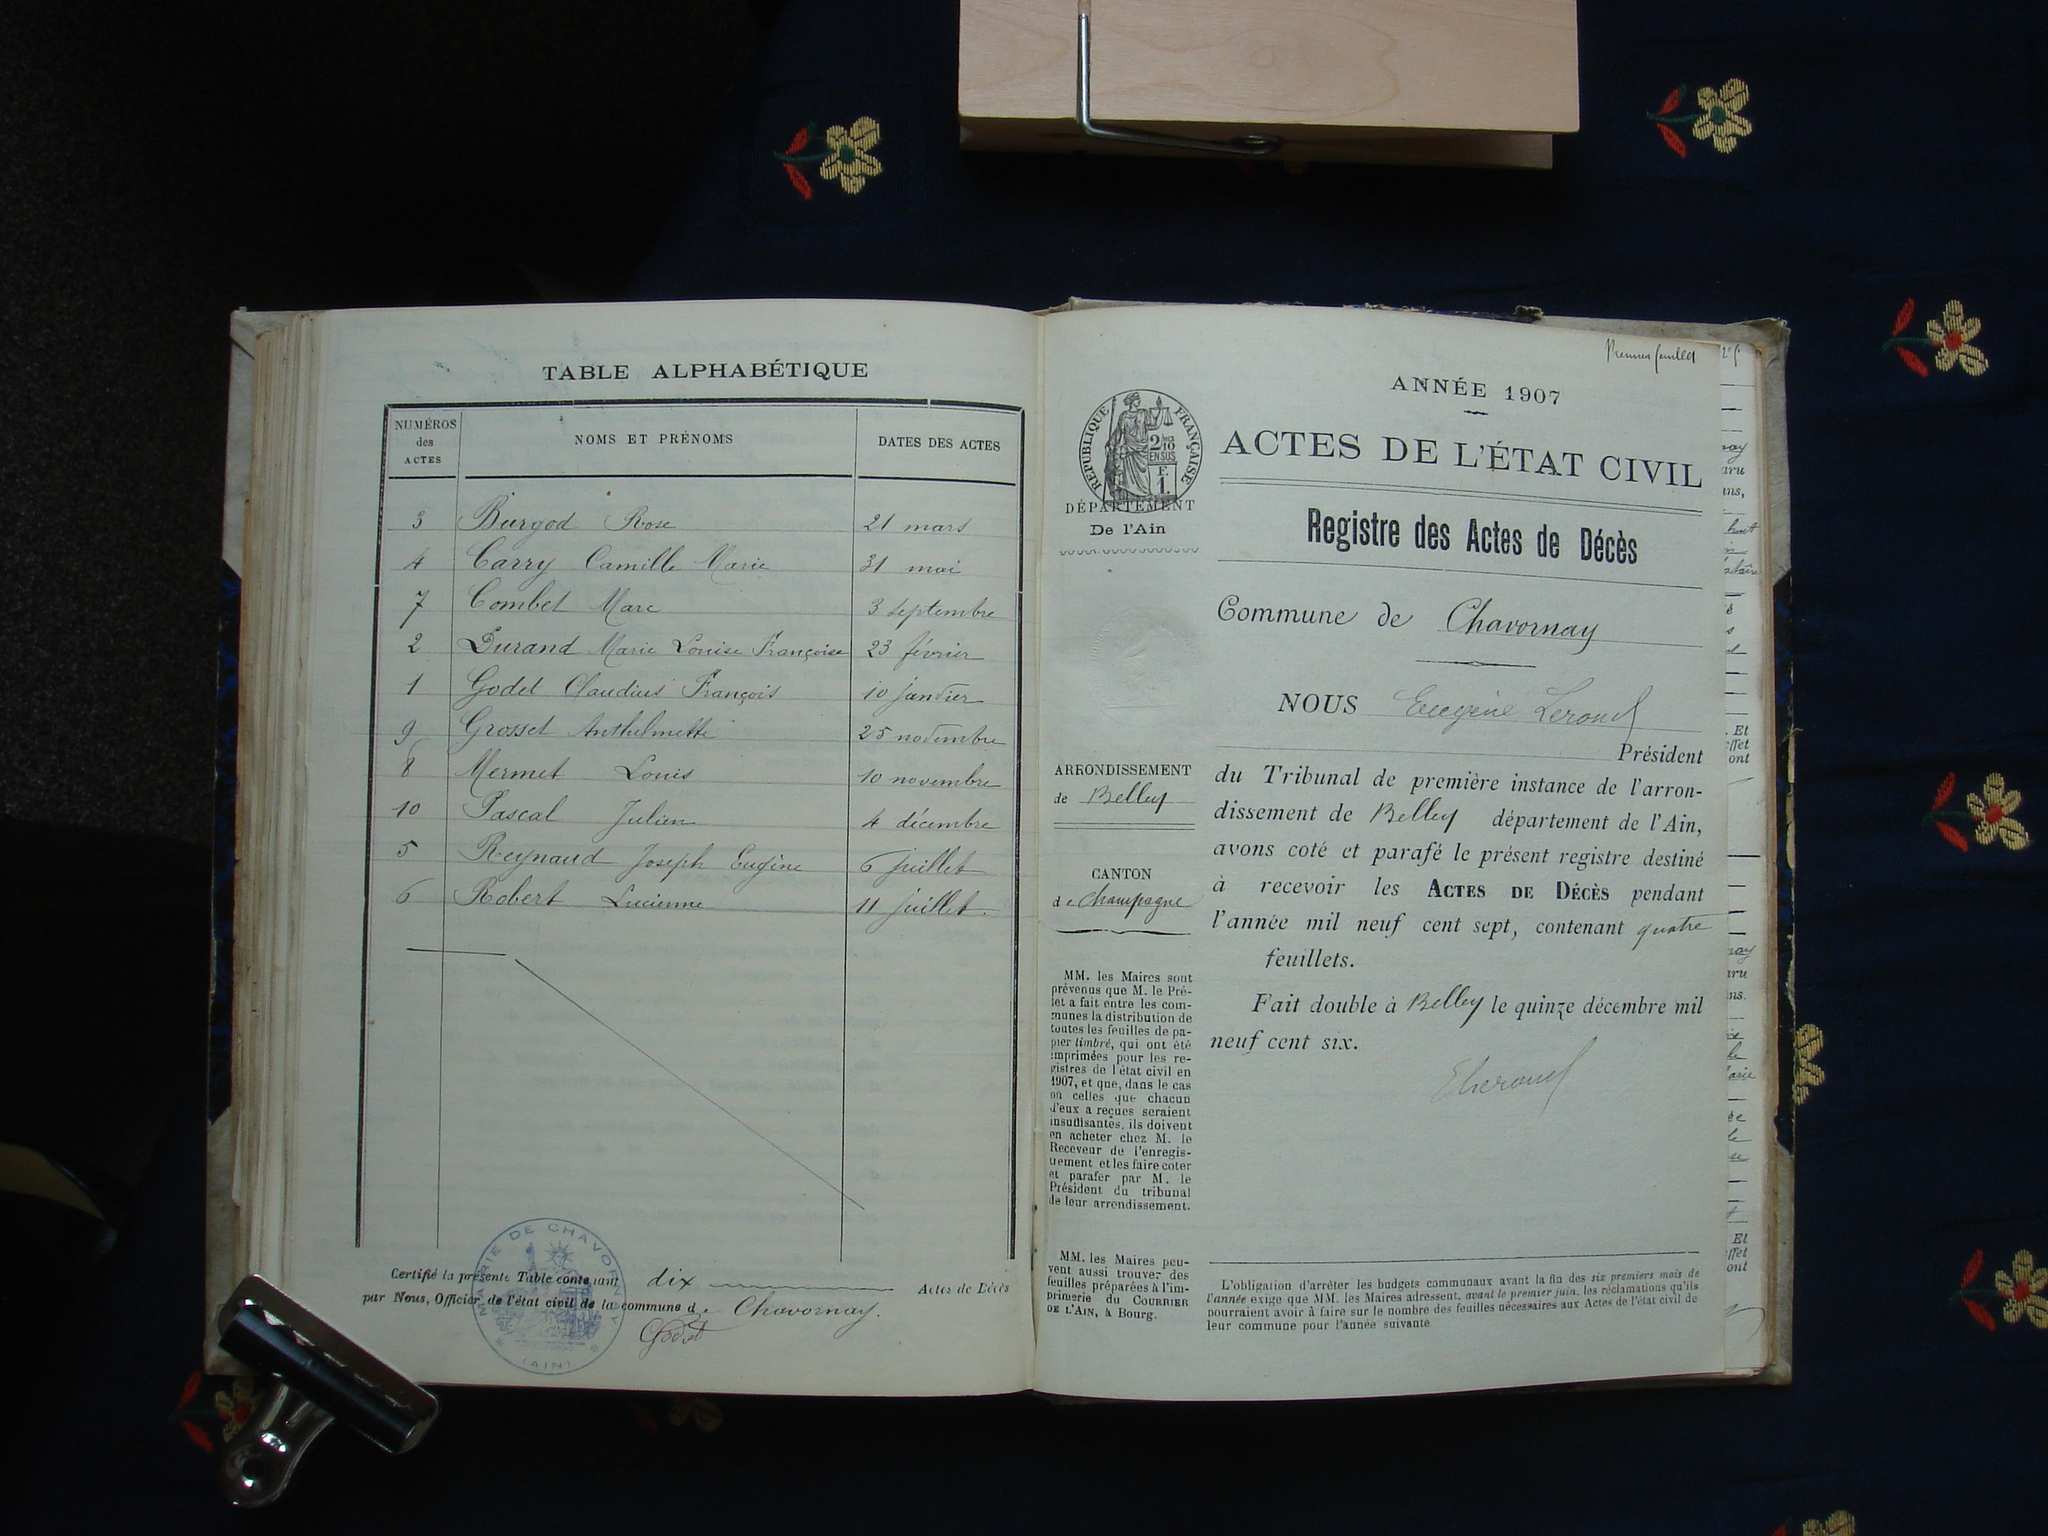 TABLE ALPHABÉTIQUE
NUMÉROS des ACTES NOMS ET PRÉNOMS DATES DES ACTES
3 Burgod Rose 21 mars
4 Carry Camille Marie 31 mai
7 Combet Marc 3 septembre
2 Durand Marie Louise Françoise 23 février
1 Godet Claudius François 10 janvier
9 Grosset Anthelmette 25 novembre
8 Mermet Louis 10 novembre
10 Pascal Julien 4 décembre
5 Reynaud Joseph Eugène 6 juillet
6 Robert Lucienne 11 juillet.
Certifié la présente Table contenant dix Actes de Décès
par Nous, Officier de l'état civil de la commune de Chavornay.
Godet
MAIRIE DE CHAVORNAY
(AIN)
Premier feuillet
ANNÉE 1907
RÉPUBLIQUE FRANÇAISE
2/10 EN SUS
F. 1.
ACTES DE L'ÉTAT CIVIL
DÉPARTEMENT
De l'Ain
Registre des Actes de Décès
Commune de Chavornay
NOUS Eugène
Président
du Tribunal de première instance de l'arron-
dissement de Belley département de l'Ain,
avons coté et parafé le présent registre destiné
à recevoir les ACTES DE DÉCÈS pendant
l'année mil neuf cent sept, contenant quatre
feuillets.
Fait double à Belley le quinze décembre mil
neuf cent six.
ARRONDISSEMENT
de Belley
CANTON
de Champagne
MM. les Maires sont
prévenus que M. le Pré-
fet a fait entre les com-
munes la distribution de
toutes les feuilles de pa-
pier timbré, qui ont été
imprimées pour les re-
gistres de l'état civil en
1907, et que, dans le cas
où celles que chacun
d'eux a reçues seraient
insuffisantes, ils doivent
en acheter chez M. le
Receveur de l'enregis-
trement et les faire coter
et parafer par M. le
Président du tribunal
de leur arrondissement.
MM. les Maires peu-
vent aussi trouver des
feuilles préparées à l'im-
primerie du COURRIER
DE L'AIN, à Bourg.
L'obligation d'arrêter les budgets communaux avant la fin des six premiers mois de
l'année exige que MM. les Maires adressent, avant le premier juin, les réclamations qu'ils
pourraient avoir à faire sur le nombre des feuilles nécessaires aux Actes de l'état civil de
leur commune pour l'année suivante